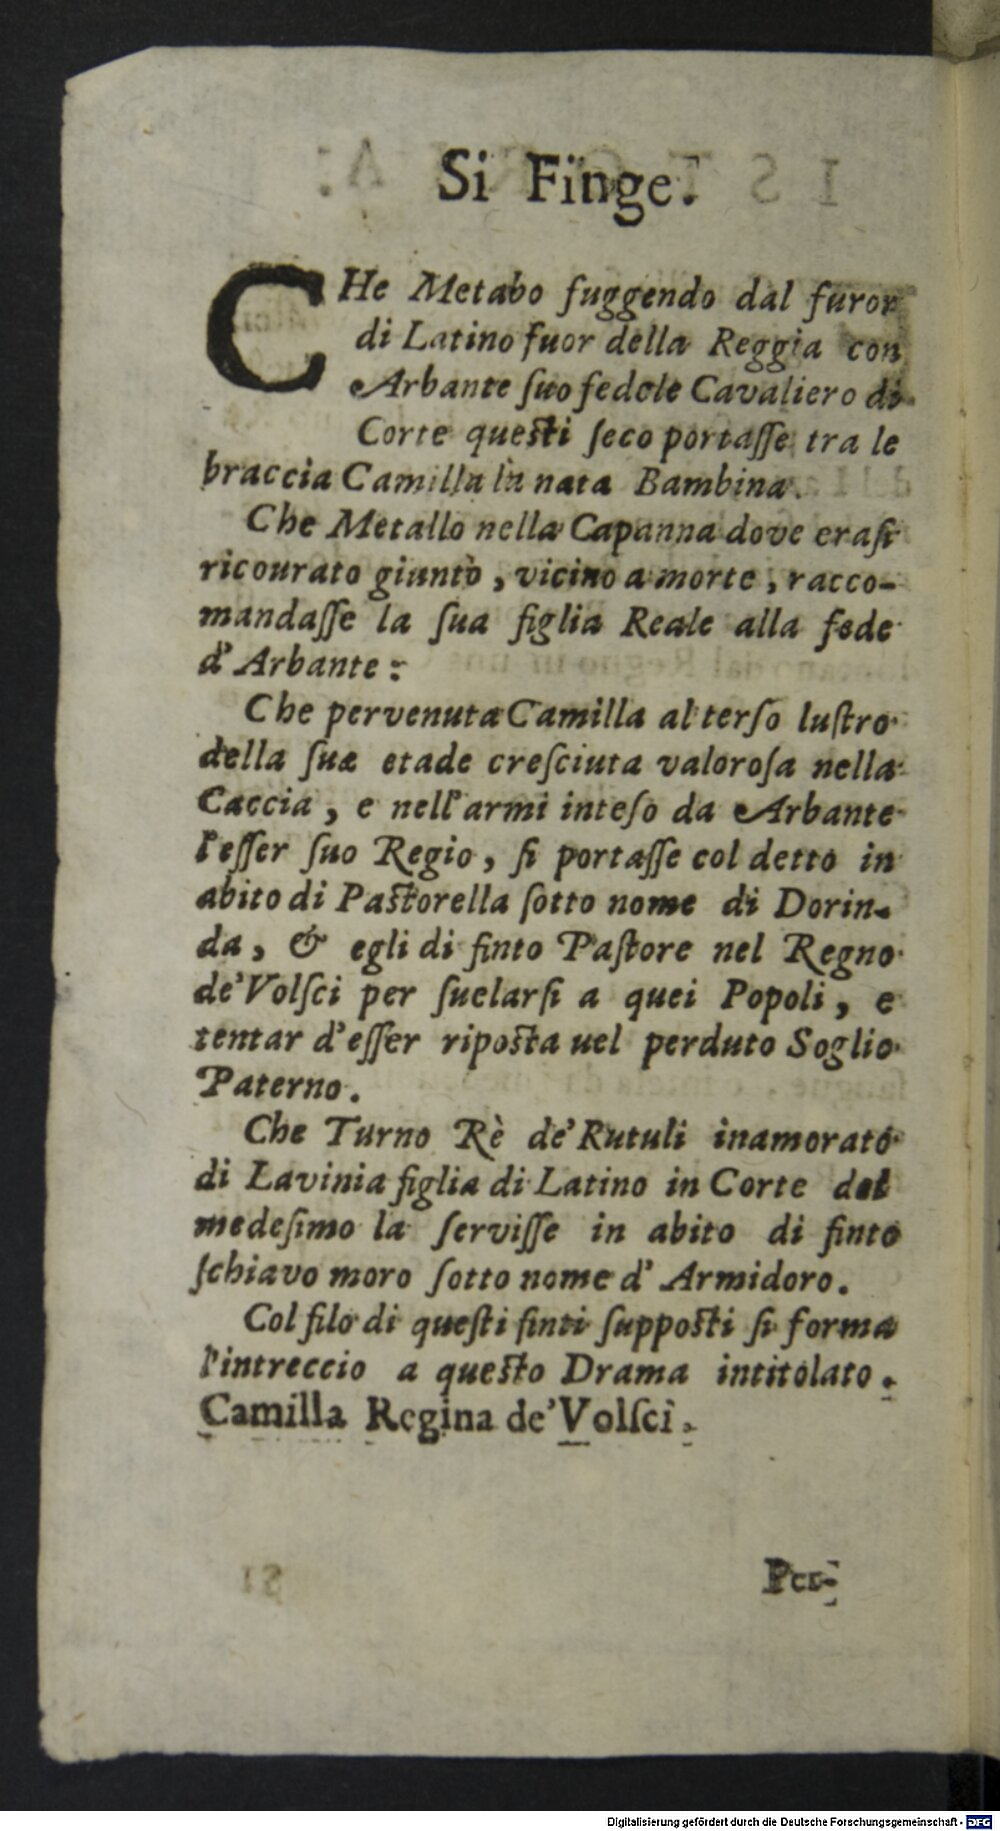 Si Finge.
CHe Metabo fuggendo dal furor
di Latino fuor della Reggia con
Arbante ſuo fedele Cavaliero di
Corte queſti ſeco portaſſe tra le
braccia Camilla nata Bambina.
Che Metallo nella Capanna dove eraſi
ricourato giunto, vicino a morte, racco-
mandaſſe la ſua figlia Reale alla fede
d'Arbante:
Che pervenuta Camilla al terſo luſtro
della ſua etade creſciuta valoroſa nella
Caccia, e nell'armi inteſo da Arbante
l'eſſer ſuo Regio, ſi portaſſe col detto in
abito di Paſtorella ſotto nome di Dorin-
da, & egli di finto Paſtore nel Regno
de'Volſci per ſuelarſi a quei Popoli, e
tentar d'eſſer ripoſta uel perduto Soglio
Paterno.
Che Turno Rè de'Rutuli inamorato
di Lavinia figlia di Latino in Corte del
medeſimo la ſerviſſe in abito di finto
ſchiavo moro ſotto nome d'Armidoro.
Col filo di queſti finti ſuppoſti ſi forma
l'intreccio a queſto Drama intitolato.
Camilla Regina de'Volſci.
Per-
Digitalisierung gefördert durch die Deutsche Forschungsgemeinschaft - DFG